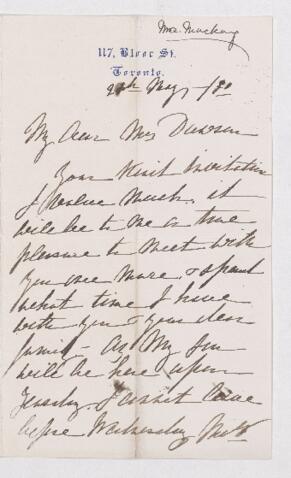 Mrs. Mackay
117, Bloor St.
Toronto.
May /80
My dear Mrs Dawson
Your kind invitation
I value much. it
will be to me a true
pleasure to meet with
you once more, & spend
what time I have
with you & your dear
family - As My Son
will be here upon
Tuesday. I cannot leave
before Wednesday